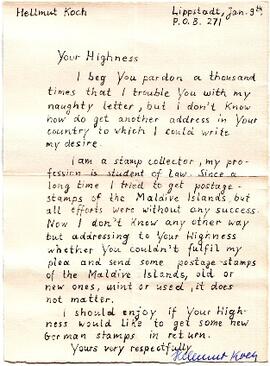 Hellmut Koch
Lippstadt, Jan. 9th
P.O.B. 271
Your Highness
I beg You pardon a thousand
times that I trouble You with my
naughty letter, but i don't know
how do get another address in Your
country to which I could write
my desire.
I am a stamp collector, my pro-
fession is student of law. Since a
long time I tried to get postage-
stamps of the Maldive Islands, but
all efforts were without any success.
Now I don't know any other way
but addressing to Your Highness
whether You couldn't fulfil my
plea and send some postage-stamps
of the Maldive Islands, old or
new ones, mint or used, it does
not matter.
I should enjoy if Your High-
ness would like to get some new
German stamps in return.
Yours very respectfully
Hellmut Koch